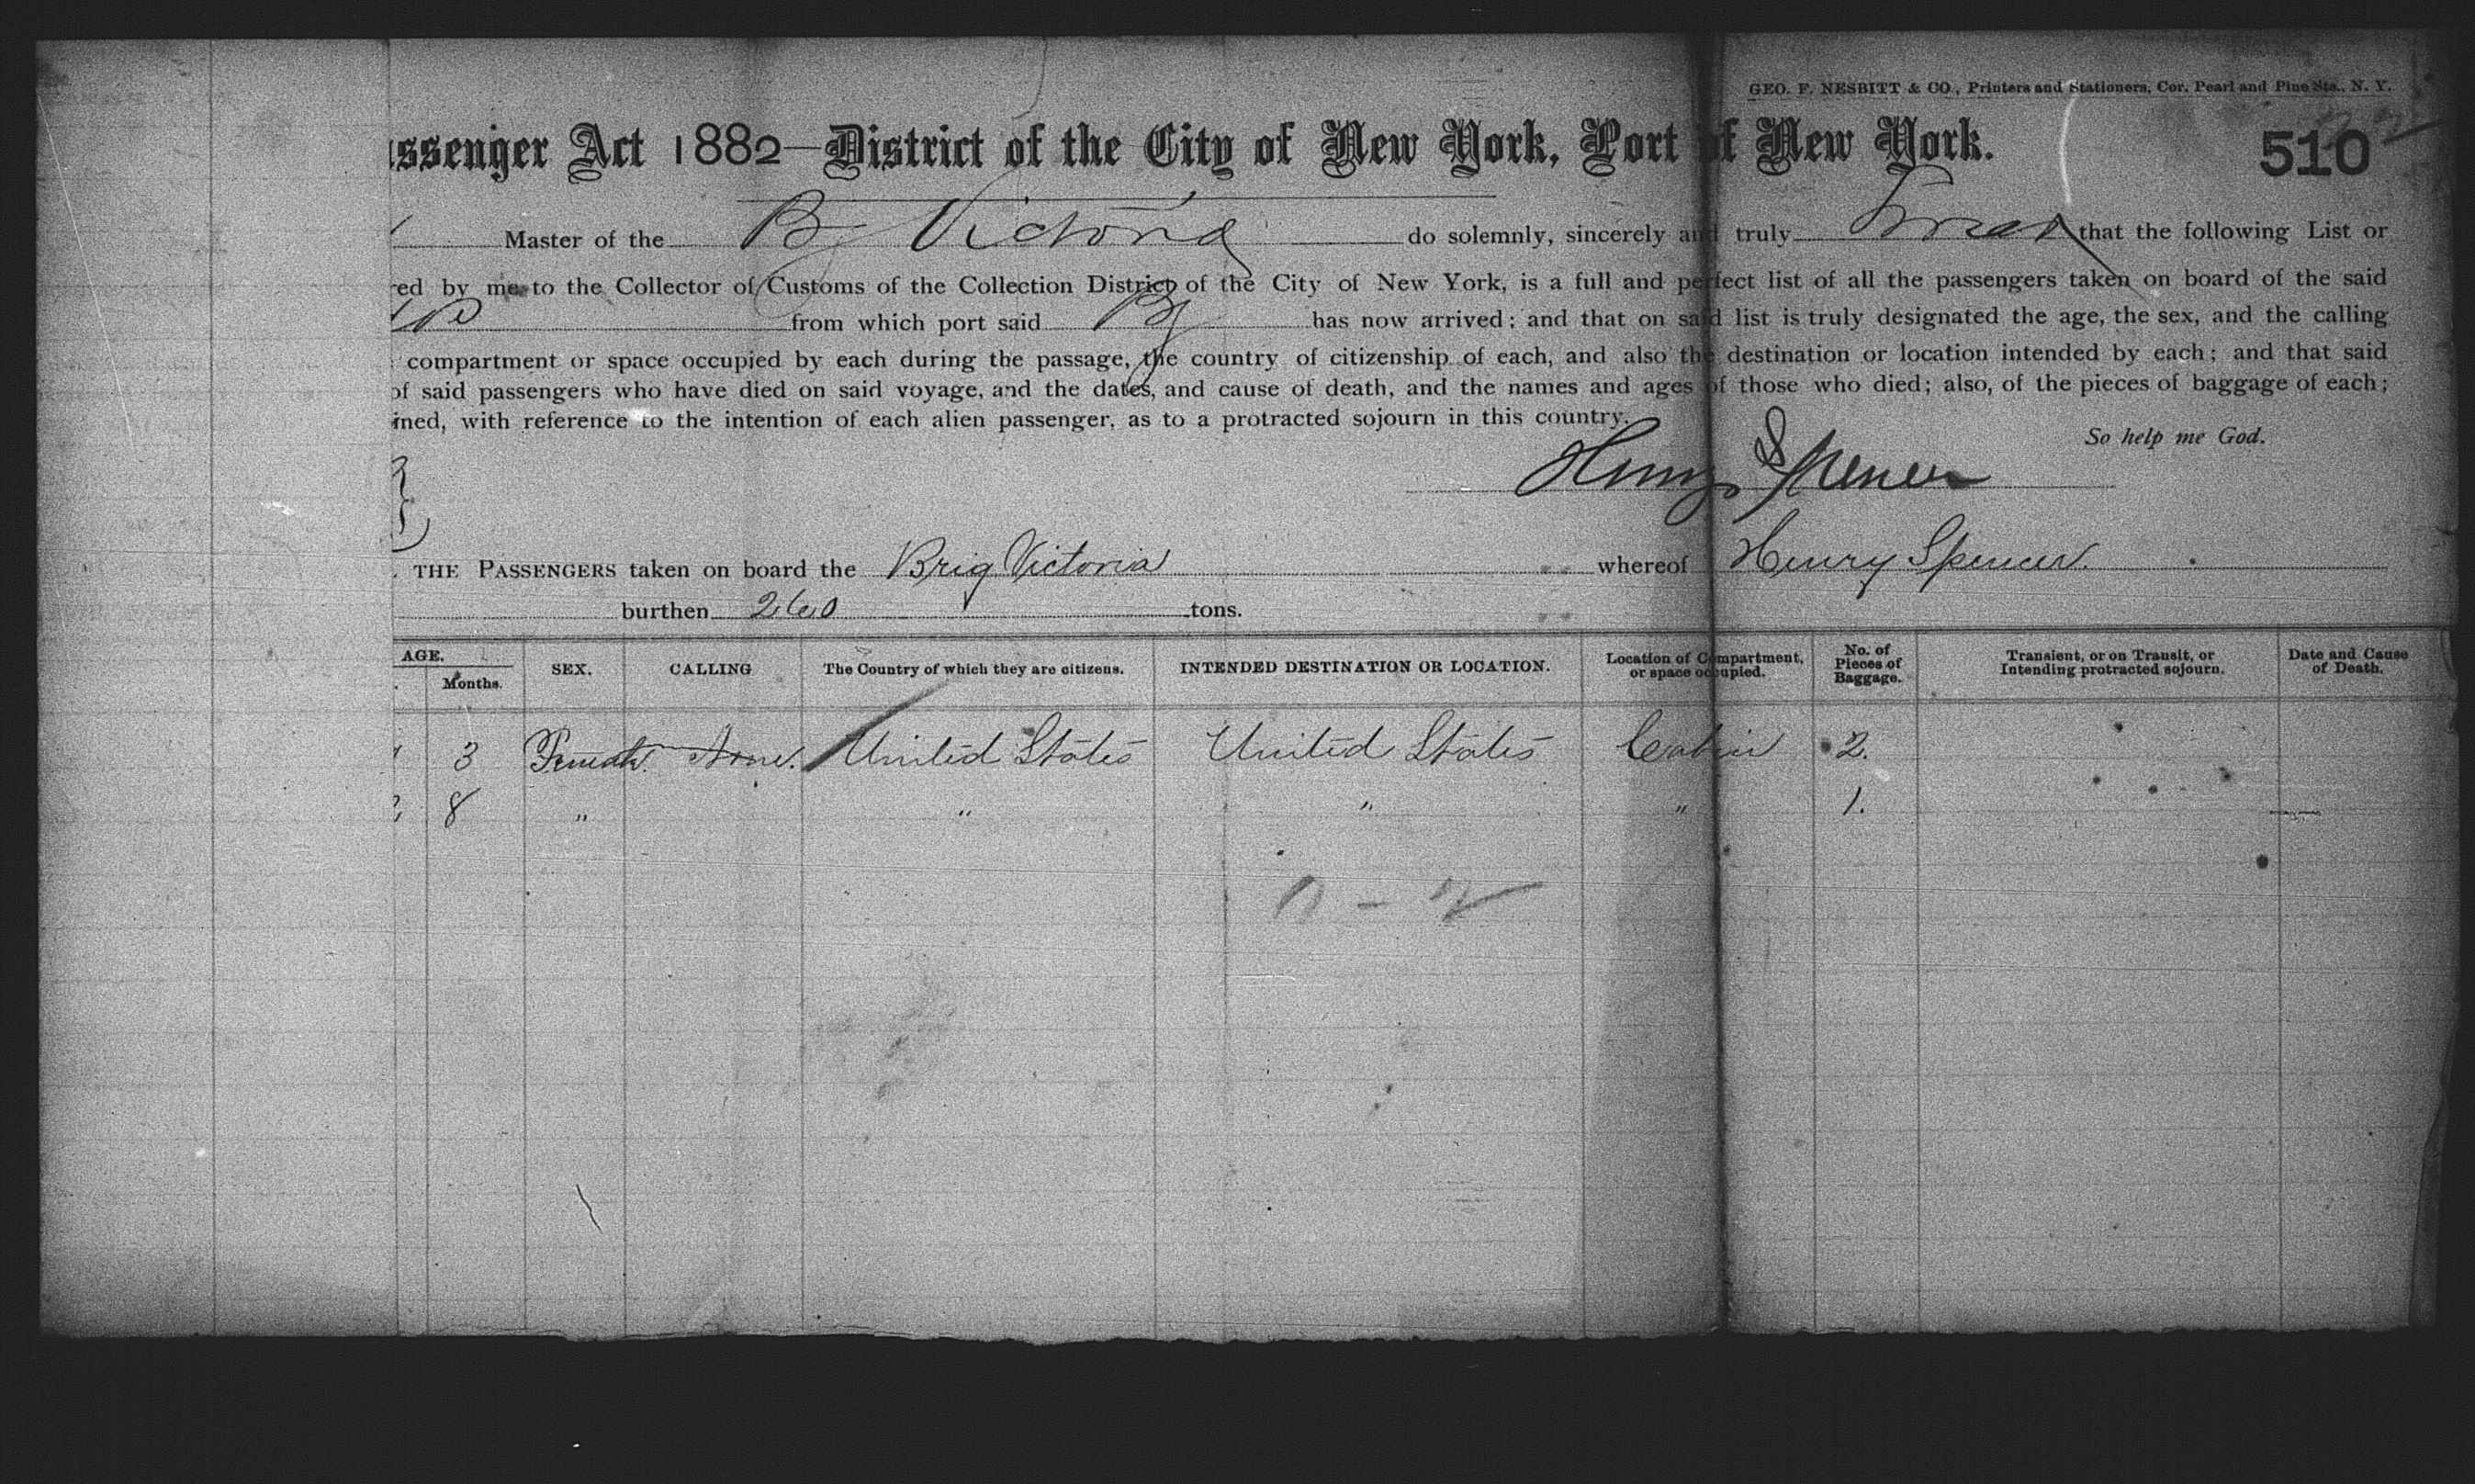 GEO. F. NESBITT & CO., Printers and Stationers, Cor. Pearl and Pine Sts., N. Y.
ssenger Act 1882—District of the City of New York, Port of New York.
510
Master of the B Victoria do solemnly, sincerely and truly Swear that the following List or
red by me to the Collector of Customs of the Collection District of the City of New York, is a full and perfect list of all the passengers taken on board of the said
from which port said Bg has now arrived; and that on said list is truly designated the age, the sex, and the calling
compartment or space occupied by each during the passage, the country of citizenship of each, and also the destination or location intended by each; and that said
of said passengers who have died on said voyage, and the dates, and cause of death, and the names and ages of those who died; also, of the pieces of baggage of each;
ined, with reference to the intention of each alien passenger, as to a protracted sojourn in this country.
So help me God.
Henry Spencer
THE PASSENGERS taken on board the Brig Victoria whereof Henry Spencer.
burthen 260 tons.
AGE. Months. SEX. CALLING The Country of which they are citizens. INTENDED DESTINATION OR LOCATION. Location of Compartment, or space occupied. No. of Pieces of Baggage. Transient, or on Transit, or Intending protracted sojourn. Date and Cause of Death.
3 Female. None. United States United States Cabin 2.
8 " " " " 1.